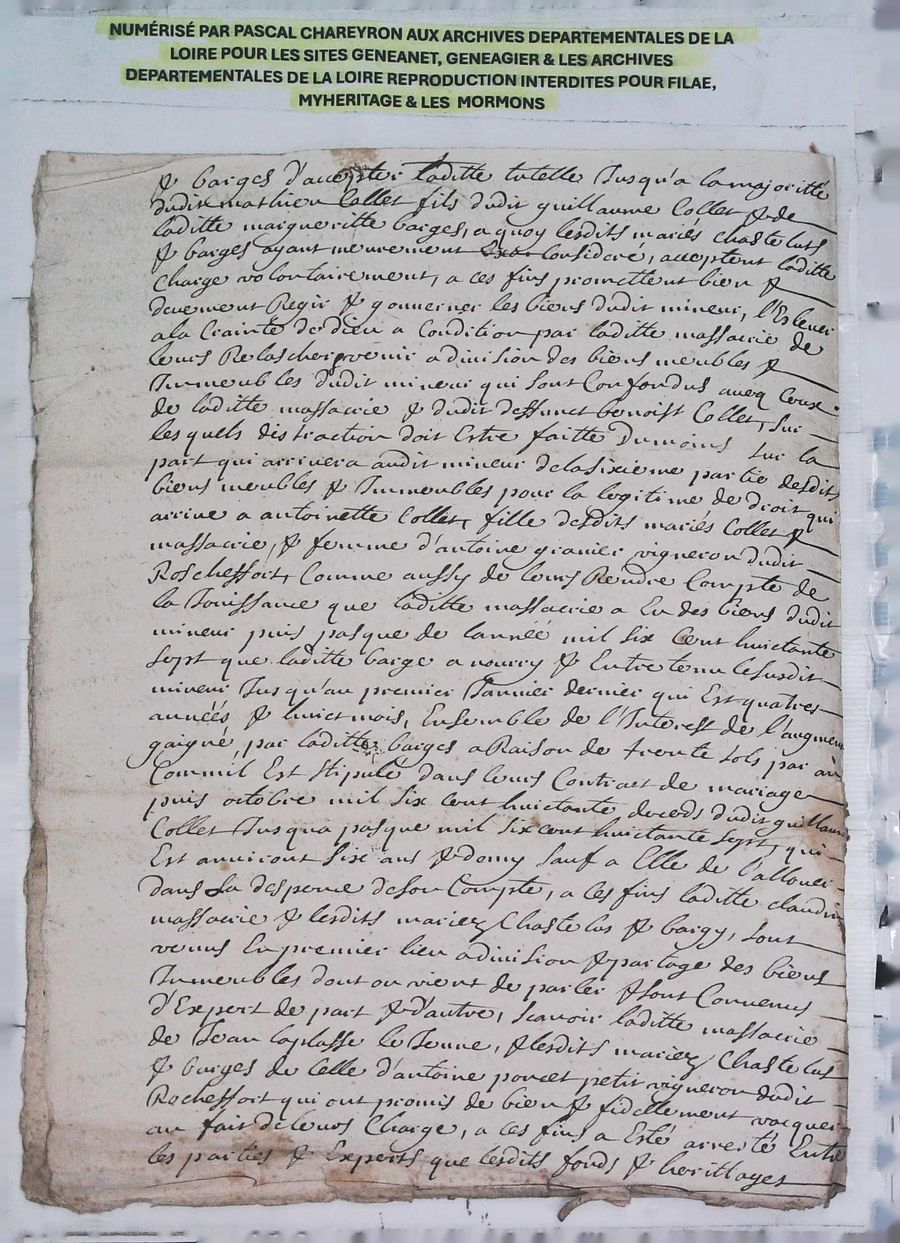 NUMÉRISÉ PAR PASCAL CHAREYRON AUX ARCHIVES DEPARTEMENTALES DE LA
LOIRE POUR LES SITES GENEANET, GENEAGIER & LES ARCHIVES
DEPARTEMENTALES DE LA LOIRE REPRODUCTION INTERDITES POUR FILAE,
MYHERITAGE & LES MORMONS
& barges d'accepter laditte tutelle Jusqu'a la majoritté
dudit mathieu Collet fils dudit guillaume Collet & de
laditte margueritte barges, a quoy lesdits mariés Chastelus
& barges ayant meurement Consideré, acceptent laditte
Charge volontairement, a ces fins promettent bien &
deuement Regir & gouverner les biens dudit mineur, l'Eslever
a la Crainte de dieu a Condition par laditte massacrie de
leurs Relascher venir a division des biens meubles &
Immeubles dudit mineur qui sont Confondus avecq Ceux
de laditte massacrie & dudit deffunct benoist Collet, sur
lesquels distraction doit Estre faitte Dumoins sur la
part qui arrivera audit mineur de la sixieme partie desdits
biens meubles & Immeubles pour la legitime de droit qui
arrive a antoinette Collet, fille desdits mariés Collet &
massacrie, & femme d'antoine granier vigneron dudit
Roscheffort, Comme aussy de leurs Rendre Compte de
la Jouissance que laditte massacrie a Eu des biens dudit
mineur puis pasque de lannéé mil six Cent huictante
sept que laditte barge a nourry & Entretenu le susdit
mineur Jusqu'au premier Janvier dernier qui Est quatres
annéés & huict mois, Ensemble de l'Interest de l'augment
gaigné, par laditte barges a Raison de trente sols par an
Comm'il Est stipulé dans leurs Contract de mariage
puis octobre mil six cent huictante deceds dudit guillaume
Collet Jusqua pasque mil six cent huictante sept, qui
Est environt six ans & demy sauf a Elle de l'allouer
dans la despence de son Compte, a ces fins laditte claudine
massacrie & lesdits mariez Chastelus & bargy, sont
venus En premier lieu a division & partage des biens
Immeubles dont on vient de parler & sont Convenus
d'Expert de part & d'autre, scavoir laditte massacrie
de Jean laplasse le Jeune, & lesdits mariez Chastelus
& barges de Celle d'antoine poncet petit vigneron dudit
Rocheffort qui ont promis de bien & fidellement vacquer
au fait de leurs Charge, a ces fins a Esté arresté Entre
les parties & Experts que lesdits fonds & herittages